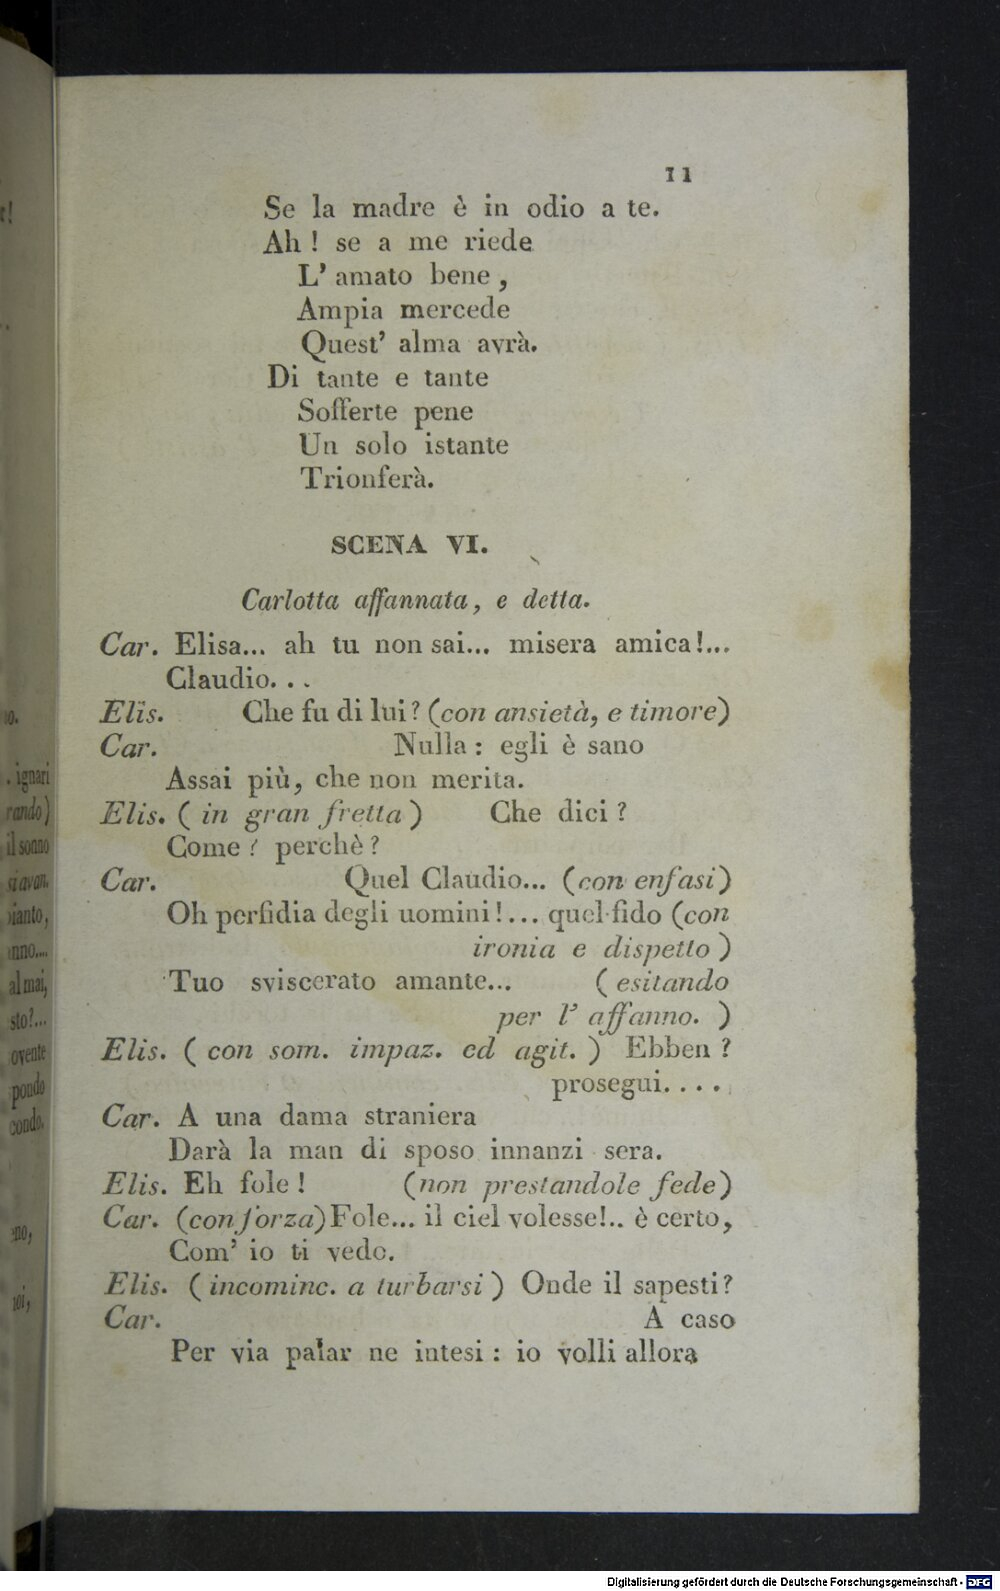 11
Se la madre è in odio a te.
Ah ! se a me riede
L' amato bene ,
Ampia mercede
Quest' alma avrà.
Di tante e tante
Sofferte pene
Un solo istante
Trionferà.
SCENA VI.
Carlotta affannata, e detta.
Car. Elisa... ah tu non sai... misera amica!...
Claudio. . .
Elis. Che fu di lui? (con ansietà, e timore)
Car. Nulla : egli è sano
Assai più, che non merita.
Elis. ( in gran fretta ) Che dici ?
Come ? perchè ?
Car. Quel Claudio... (con enfasi)
Oh perfidia degli uomini!... quel fido (con
ironia e dispetto )
Tuo sviscerato amante... ( esitando
per l' affanno. )
Elis. ( con som. impaz. ed agit. ) Ebben ?
prosegui. . . .
Car. A una dama straniera
Darà la man di sposo innanzi sera.
Elis. Eh fole ! (non prestandole fede)
Car. (con forza) Fole... il ciel volesse!.. è certo,
Com' io ti vedo.
Elis. ( incominc. a turbarsi ) Onde il sapesti?
Car. A caso
Per via palar ne intesi : io volli allora
t!
no.
. ignari
rando)
il sonno
si avan.
pianto,
nno....
al mai,
sto?...
ovente
pondo
condo.
eno,
noi,
Digitalisierung gefördert durch die Deutsche Forschungsgemeinschaft - DFG